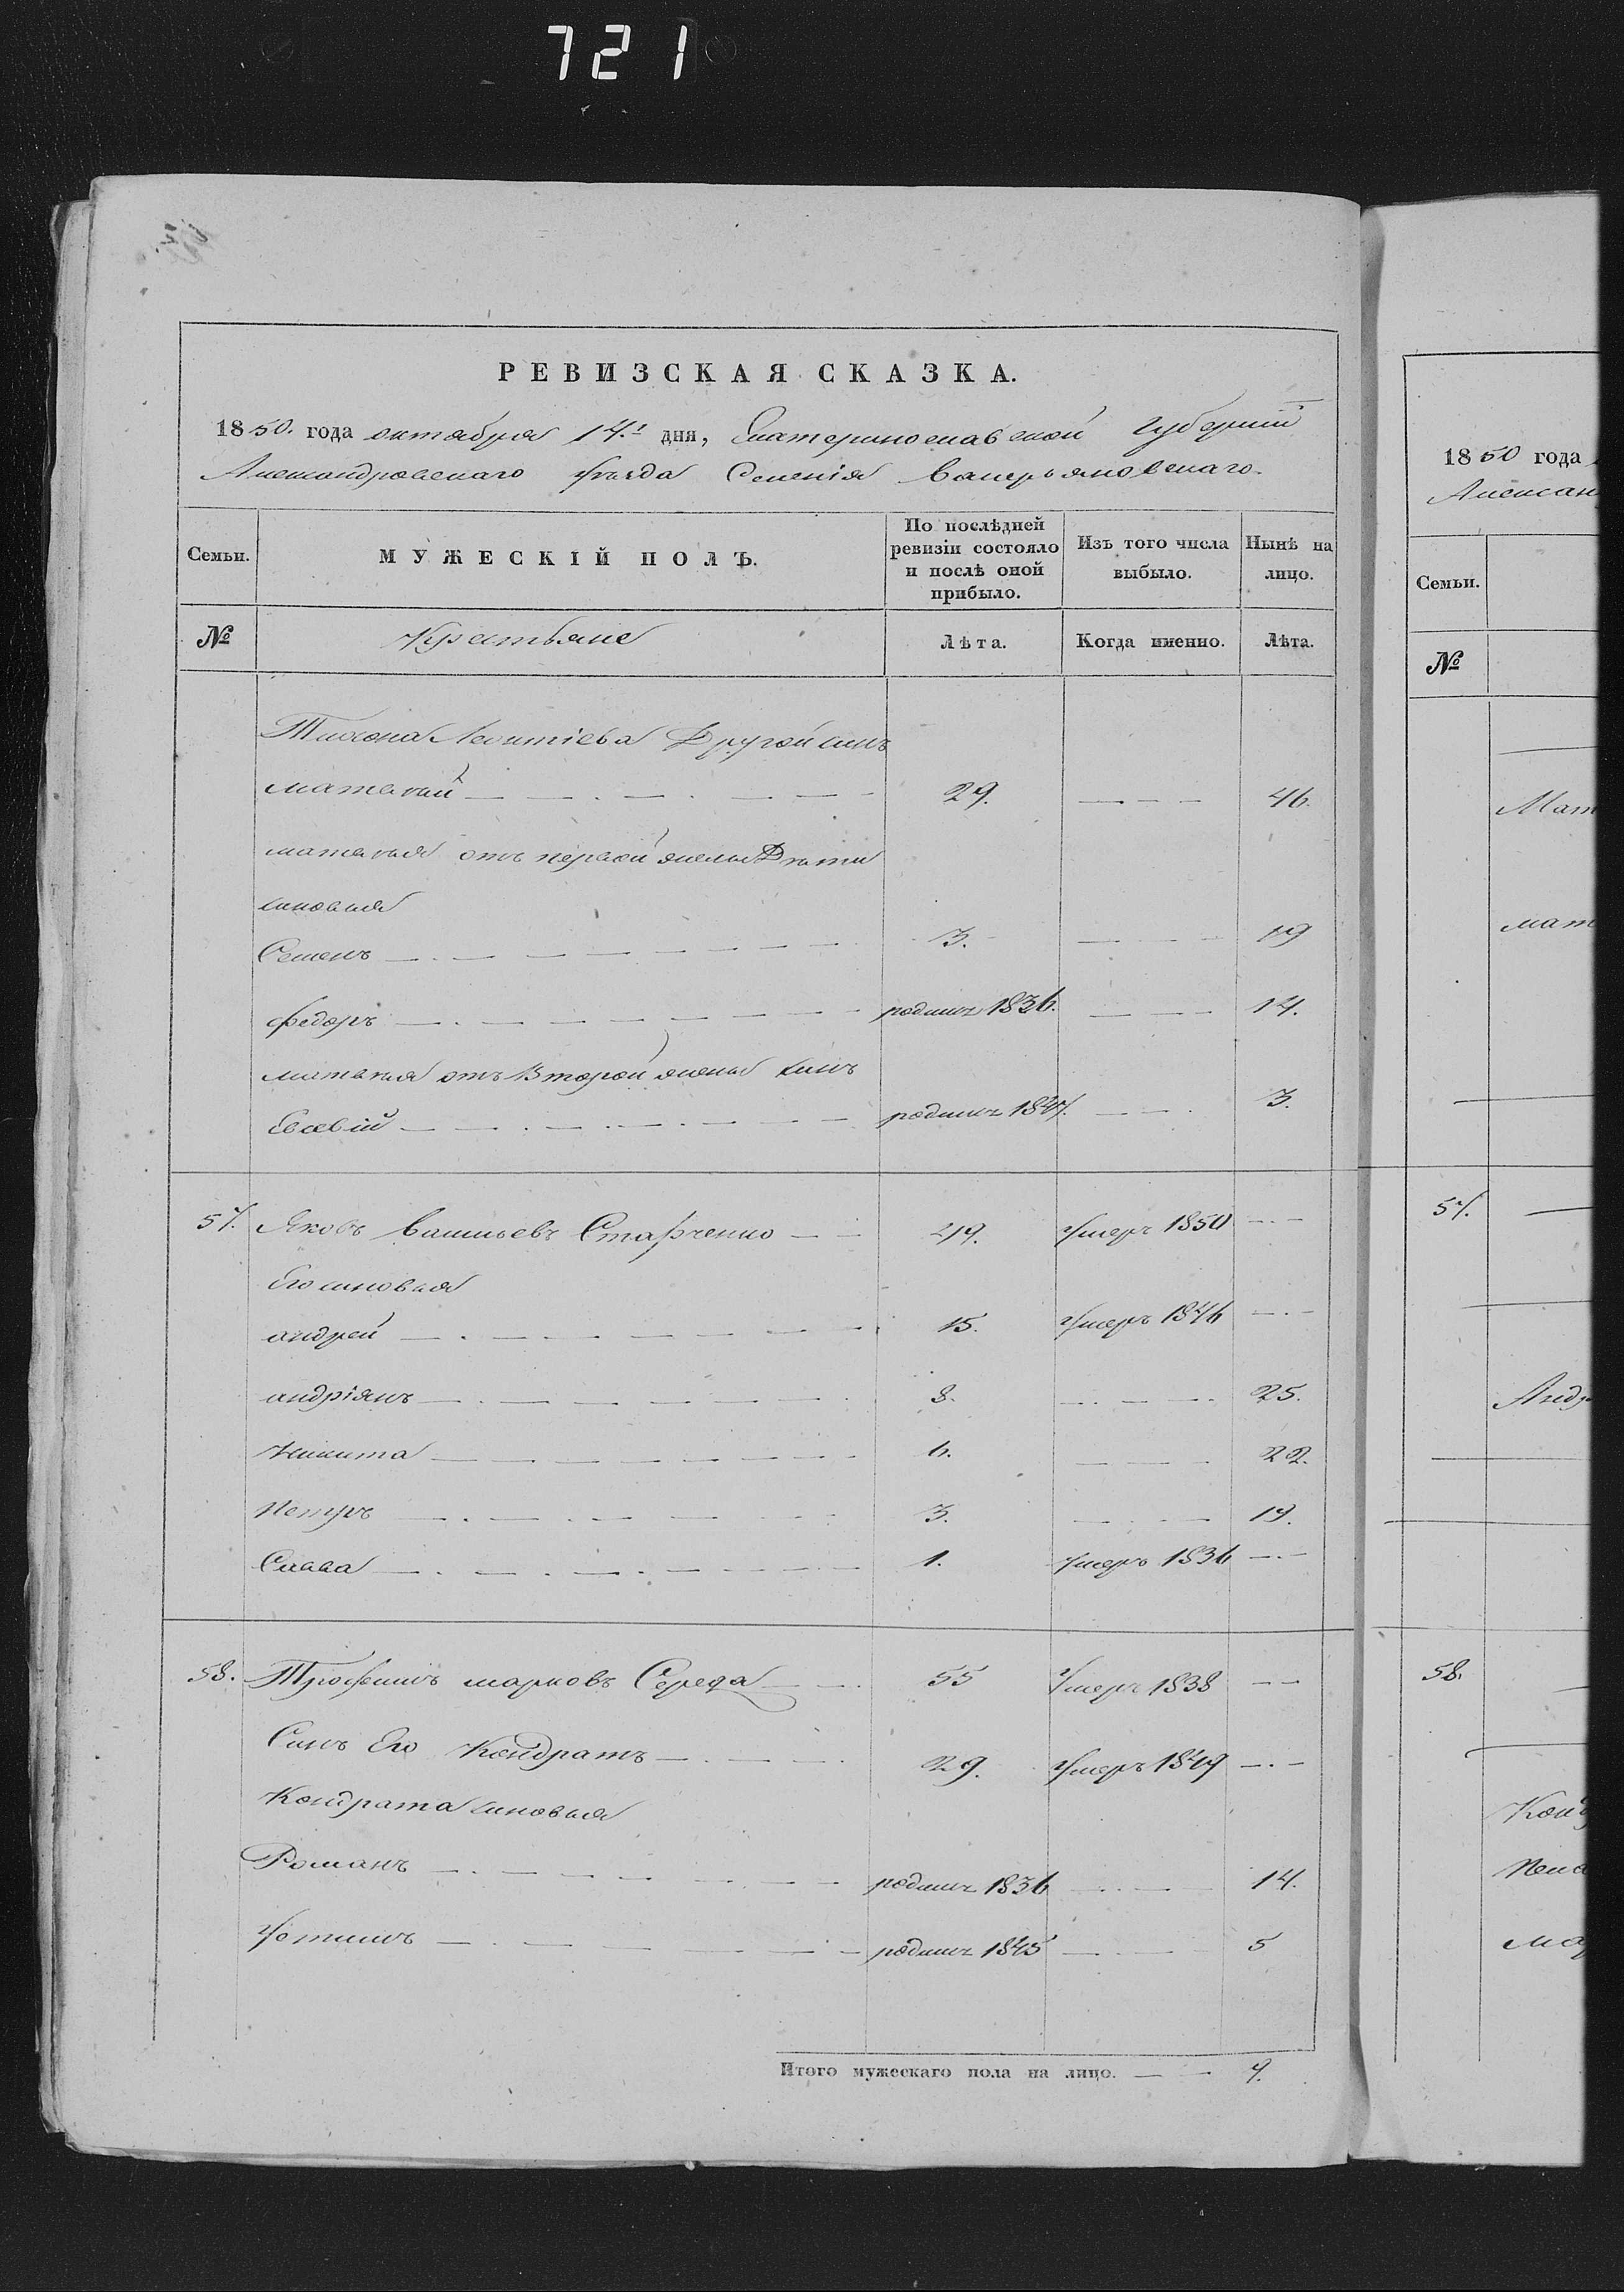 721
РЕВИЗСКАЯ СКАЗКА.
1850. года октября 14. дня, Екатеринославской губернии
Александровскаго уѣзда Селенія Валерьяновскаго.
Семьи. МУЖЕСКІЙ ПОЛЪ. По послѣдней ревизіи состояло и послѣ оной прибыло. Изъ того числа выбыло. Нынѣ на лицо.
№ Крестьяне Лѣта. Когда именно. Лѣта.
Тихона Леонтіева Другой синъ
матвѣй 29. 46.
матвѣя отъ первой жены Дѣти
синовья
Семенъ 3. 19
федоръ родилс 1836. 14.
матвѣя отъ Второй жены синъ
Евсевій родилс 1847. 3.
57. Яковъ васильевъ Старченко 49. Умеръ 1850
Его синовья
андрей 15. Умеръ 1846
андріянъ 8. 25.
Никита 6. 22.
Петръ 3. 19.
Савва 1. Умеръ 1836
58. Трофимъ марковъ Середа 55 Умеръ 1838
Синъ Его Кондратъ 29. Умеръ 1849
Кондрата синовья
Романъ родилс 1836 14.
родилс 1845 5
Итого мужескаго пола на лицо. 9.
1850 года
Алексан
Семьи.
№
Мат
мат
57.
Андр
58.
Конд
Пела
мар